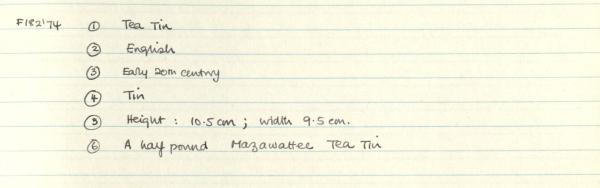 F182'74 ① Tea Tin
② English
③ Early 20th century
④ Tin
⑤ Height : 10.5cm ; width 9.5 cm.
⑥ A half pound Mazawattee Tea Tin